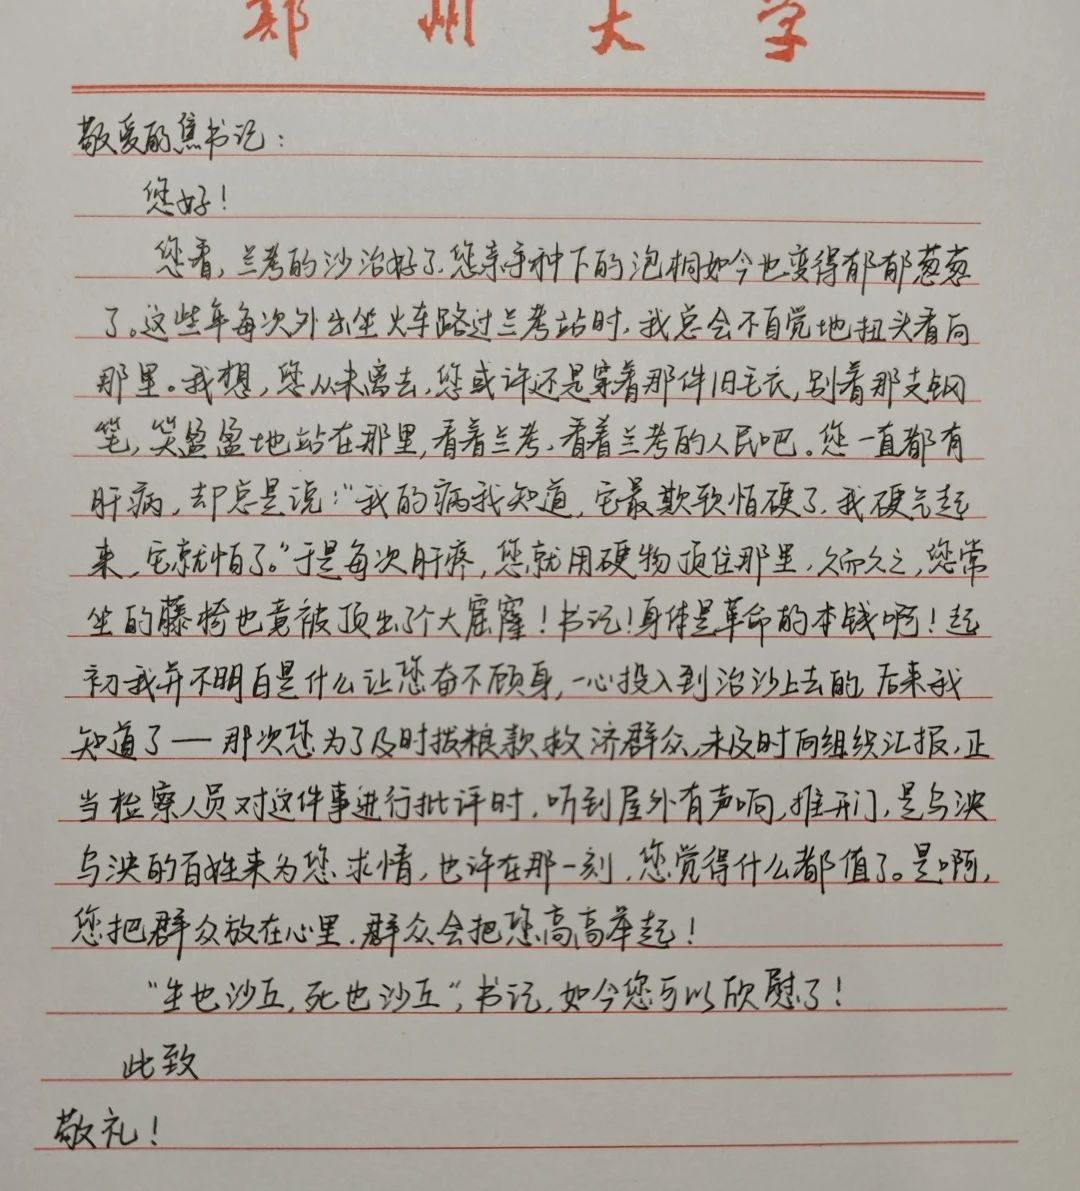 郑州大学
敬爱的焦书记：
您好！
您看，兰考的沙治好了，您亲手种下的泡桐如今也变得郁郁葱葱
了。这些年每次外出坐火车路过兰考站时，我总会不自觉地扭头看向
那里。我想，您从未离去，您或许还是穿着那件旧毛衣，别着那支钢
笔，笑盈盈地站在那里，看着兰考，看着兰考的人民吧。您一直都有
肝病，却总是说：“我的病我知道，它最欺软怕硬了，我硬气起
来，它就怕了。”于是每次肝疼，您就用硬物顶住那里，久而久之，您常
坐的藤椅也竟被顶出了个大窟窿！书记！身体是革命的本钱啊！起
初我并不明白是什么让您奋不顾身，一心投入到治沙上去的，后来我
知道了——那次您为了及时拨粮款救济群众，未及时向组织汇报，正
当检察人员对这件事进行批评时，听到屋外有声响，推开门，是乌泱
乌泱的百姓来为您求情，也许在那一刻，您觉得什么都值了。是啊，
您把群众放在心里，群众会把您高高举起！
“生也沙丘，死也沙丘”，书记，如今您可以欣慰了！
此致
敬礼！